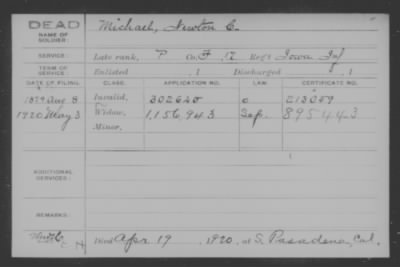 DEAD
NAME OF SOLDIER:
Michael, Newton C.
SERVICE:
Late rank, P Co. F, 12 Reg't Iowa Inf
TERM OF SERVICE:
Enlisted , 1 Discharged , 1
DATE OF FILING. CLASS. APPLICATION NO. LAW. CERTIFICATE NO.
1879 Aug 8 Invalid, 302640 213059
1920 May 3 Widow, 1,156,943 895443
Minor,
ADDITIONAL SERVICES:
REMARKS:
Died Apr 19, 1920, at S. Pasadena, Cal.